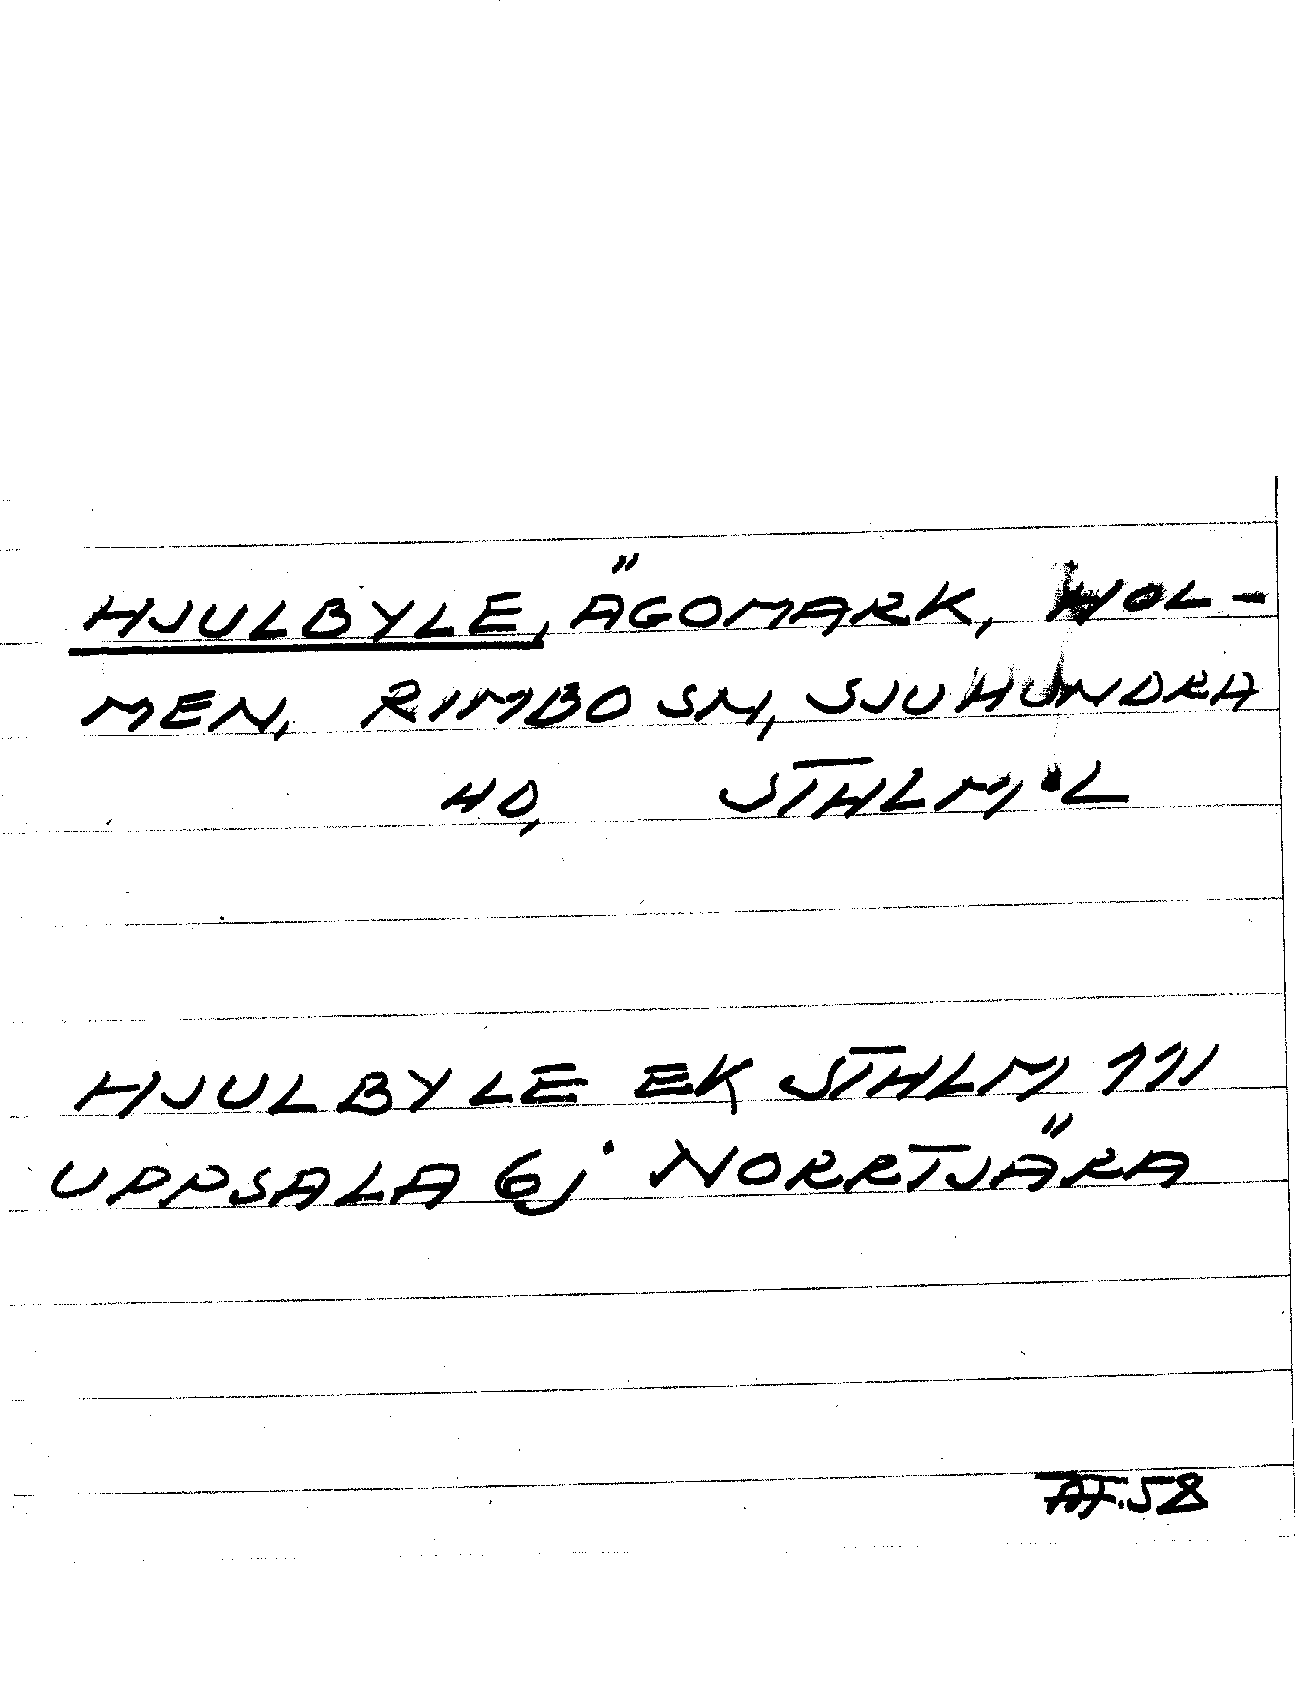 HJULBYLE, ÄGOMARK, HOL-
MEN, RIMBO SN, SJUHUNDRA
HD, STHLM.L
HJULBYLE EK STHLM 111
UPPSALA 6j NORRTJÄRA